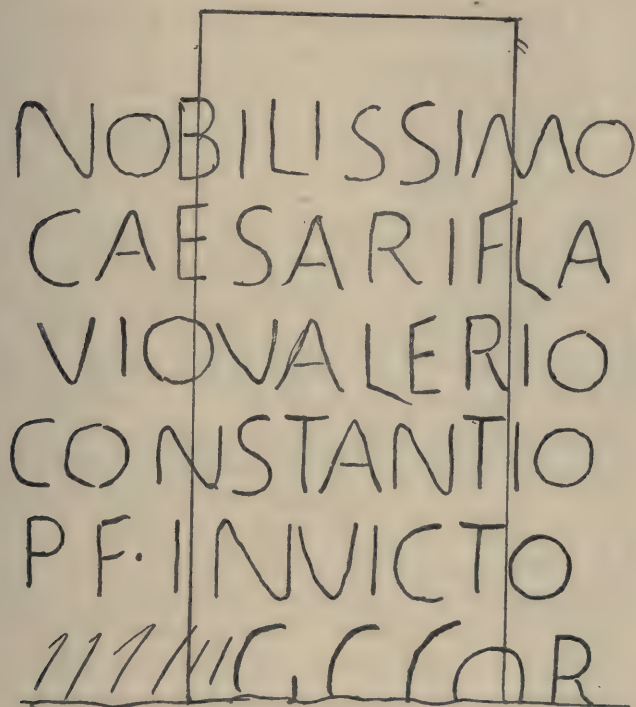 NOBILISSIMO
CAESARI FLA
VIO VALERIO
CONSTANTIO
P F. INVICTO
COR